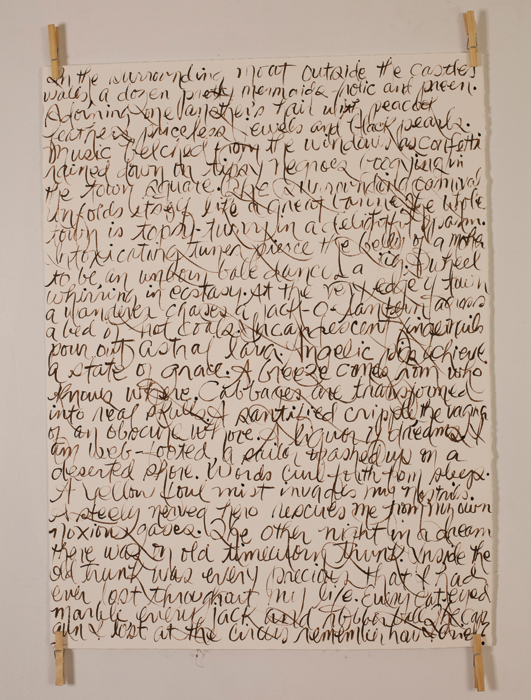 In the surrounding moat outside the castles
walls, a dozen pretty mermaids frolic and preen.
Adorning one another's tail with peacock
feathers, priceless jewels and black pearls.
Music belched from the windows as confetti
rained down on tipsy negroes in
the town square. The surrounding carnival
unfolds itself like a great The whole
town is topsy-turvy in a delightful
intoxicating tunes pierce the belly of a mother
to be, an unborn babe dances, a pinwheel
whirring in ecstasy. At the very edge of town
a wanderer chases a jack-o-lantern across
a bed of hot coals. Incandescent fingernails
pour out astral lava. Angelic achieve
a state of grace. A breeze comes from who
knows where. Cabbages are transformed
into real skulls. A sanctified cripple, the
of an obscure whore. A liquor of dreams. I
am web-footed, a sailor washed up on a
deserted shore. Words curl forth from sleep.
A yellow foul mist invades my nostrils.
A steely nerved hero rescues me from my own
noxious gases. The other night in a dream
there was an old timeworn trunk. Inside the
old trunk was every precious that I had
ever lost throughout my life. Every cat-eyed
marble, every jack and rubber ball, the cap
gun I lost at the circus, remember how I cried?